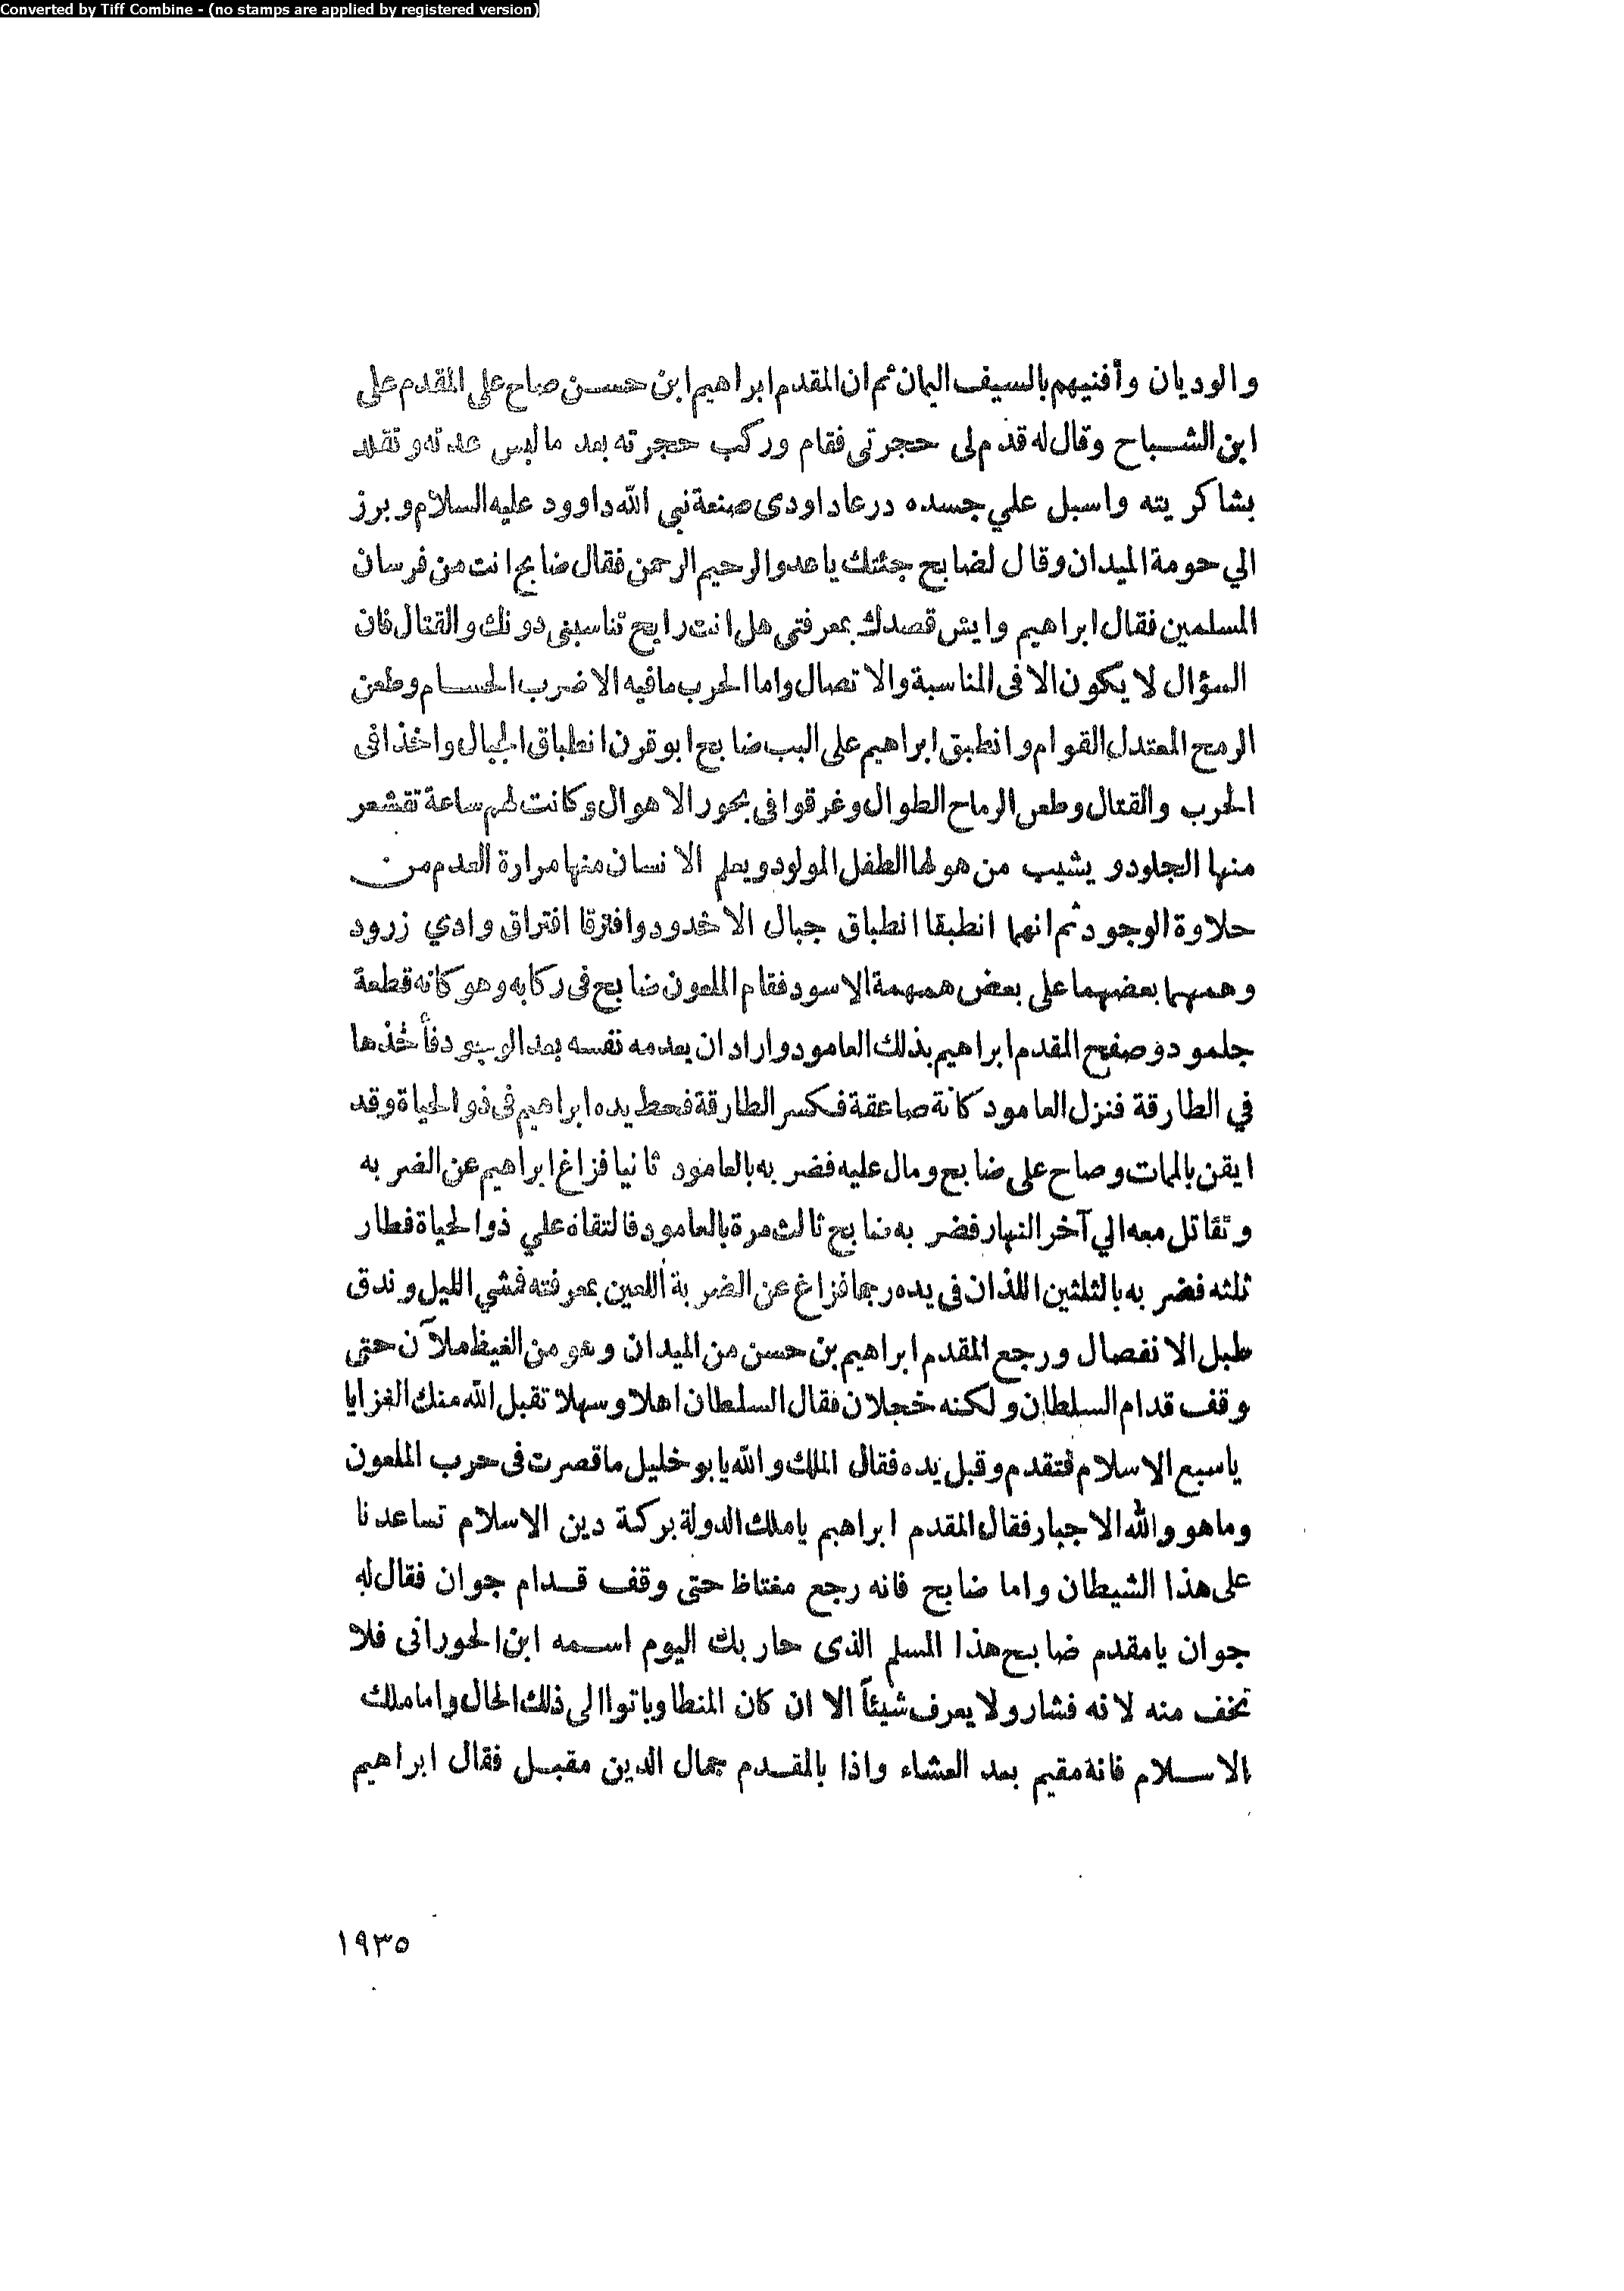 Converted by Tiff Combine - (no stamps are applied by registered version)
والوديان وأفنيهم بالسيف اليمان ثم ان المقدم ابراهيم ابن حسن صاح على المقدم على
ابن الشباح وقال له قدم لى حجرتى فقام وركب حجرته بعد ما لبس عدته وتقلد
بشاكريته واسبل علي جسده درعا داودى صنعة نبي الله داوود عليه السلام وبرز
الي حومة الميدان وقال لضابح جئتك ياعدو الرحيم الرحمن فقال ضابح انت من فرسان
المسلمين فقال ابراهيم وايش قصدك بمعرفتى هل انت رايح تناسبنى دونك والقتال فان
السؤال لا يكون الا فى المناسبة والاتصال واما الحرب مافيه الا ضرب الحسام وطعن
الرمح المعتدل القوام وانطبق ابراهيم على البب ضابح ابو قرن انطباق الجبال واخذا فى
الحرب والقتال وطعن الرماح الطوال وغرقوا فى بحور الاهوال وكانت لهم ساعة تقشعر
منها الجلود ويشيب من هولها الطفل المولود ويعلم الانسان منها مرارة العدم من
حلاوة الوجود ثم انهما انطبقا انطباق جبال الاخدود وافترقا افتراق وادي زرود
وهمهما بعضهما على بعض همهمة الاسود فقام الملعون ضابح فى ركابه وهو كانه قطعة
جلمود وصفح المقدم ابراهيم بذلك العامود واراد ان يعدمه نفسه بعد الوجود فأخذها
في الطارقة فنزل العامود كانة صاعقة فكسر الطارقة فحط يده ابراهيم فى ذو الحياة وقد
ايقن بالممات وصاح على ضابح ومال عليه فضربه بالعامود ثانيا فزاغ ابراهيم عن الضربه
وتقاتل معه الي آخر النهار فضربه ضابح ثالث مرة بالعامود فالتقاه علي ذوالحياة فطار
ثلثه فضربه بالثلثين اللذان فى يده رجما فزاغ عن الضربة اللعين بمعرفته فمشي الليل وندق
طبل الانفصال ورجع المقدم ابراهيم بن حسن من الميدان وهو من الغيظ ملآن حتى
وقف قدام السلطان ولكنه خجلان فقال السلطان اهلا وسهلا تقبل الله منك الغزايا
ياسبع الاسلام فتقدم وقبل يده فقال الملك والله يابو خليل ماقصرت فى حرب الملعون
وماهو والله الا جبار فقال المقدم ابراهيم ياملك الدولة بركة دين الاسلام تساعدنا
على هذا الشيطان واما ضابح فانه رجع مغتاظ حتى وقف قدام جوان فقال له
جوان يامقدم ضابح هذا المسلم الذى حاربك اليوم اسمه ابن الحورانى فلا
تخف منه لانه فشار ولا يعرف شيئاً الا ان كان المنطا وباتوا الى ذلك الحال واما ملك
الاسلام فانة مقيم بعد العشاء واذا بالمقدم جمال الدين مقبل فقال ابراهيم
١٩٣٥